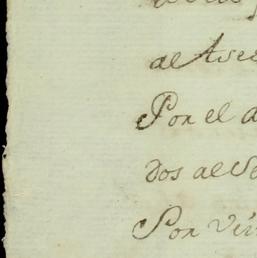 al Ase
Por el d
dos al Se
Por Vir